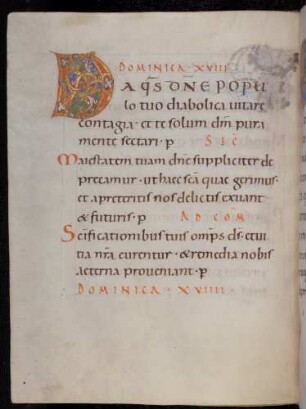 DOMINICA · XVIII ·
DA QS DNE POPU
lo tuo diabolica uitare
contagia · et te solum dm pura
mente sectari · p SEC
Maiestatem tuam dne suppliciter de
precamur · ut haec sca quae gerimus ·
et a preteritis nos delictis exuant
& futuris · p AD COM
Scificationibus tuis omps ds · et ui
tia nra curentur · & remedia nobis
aeterna proueniant · p
DOMINICA · XVIIII ·